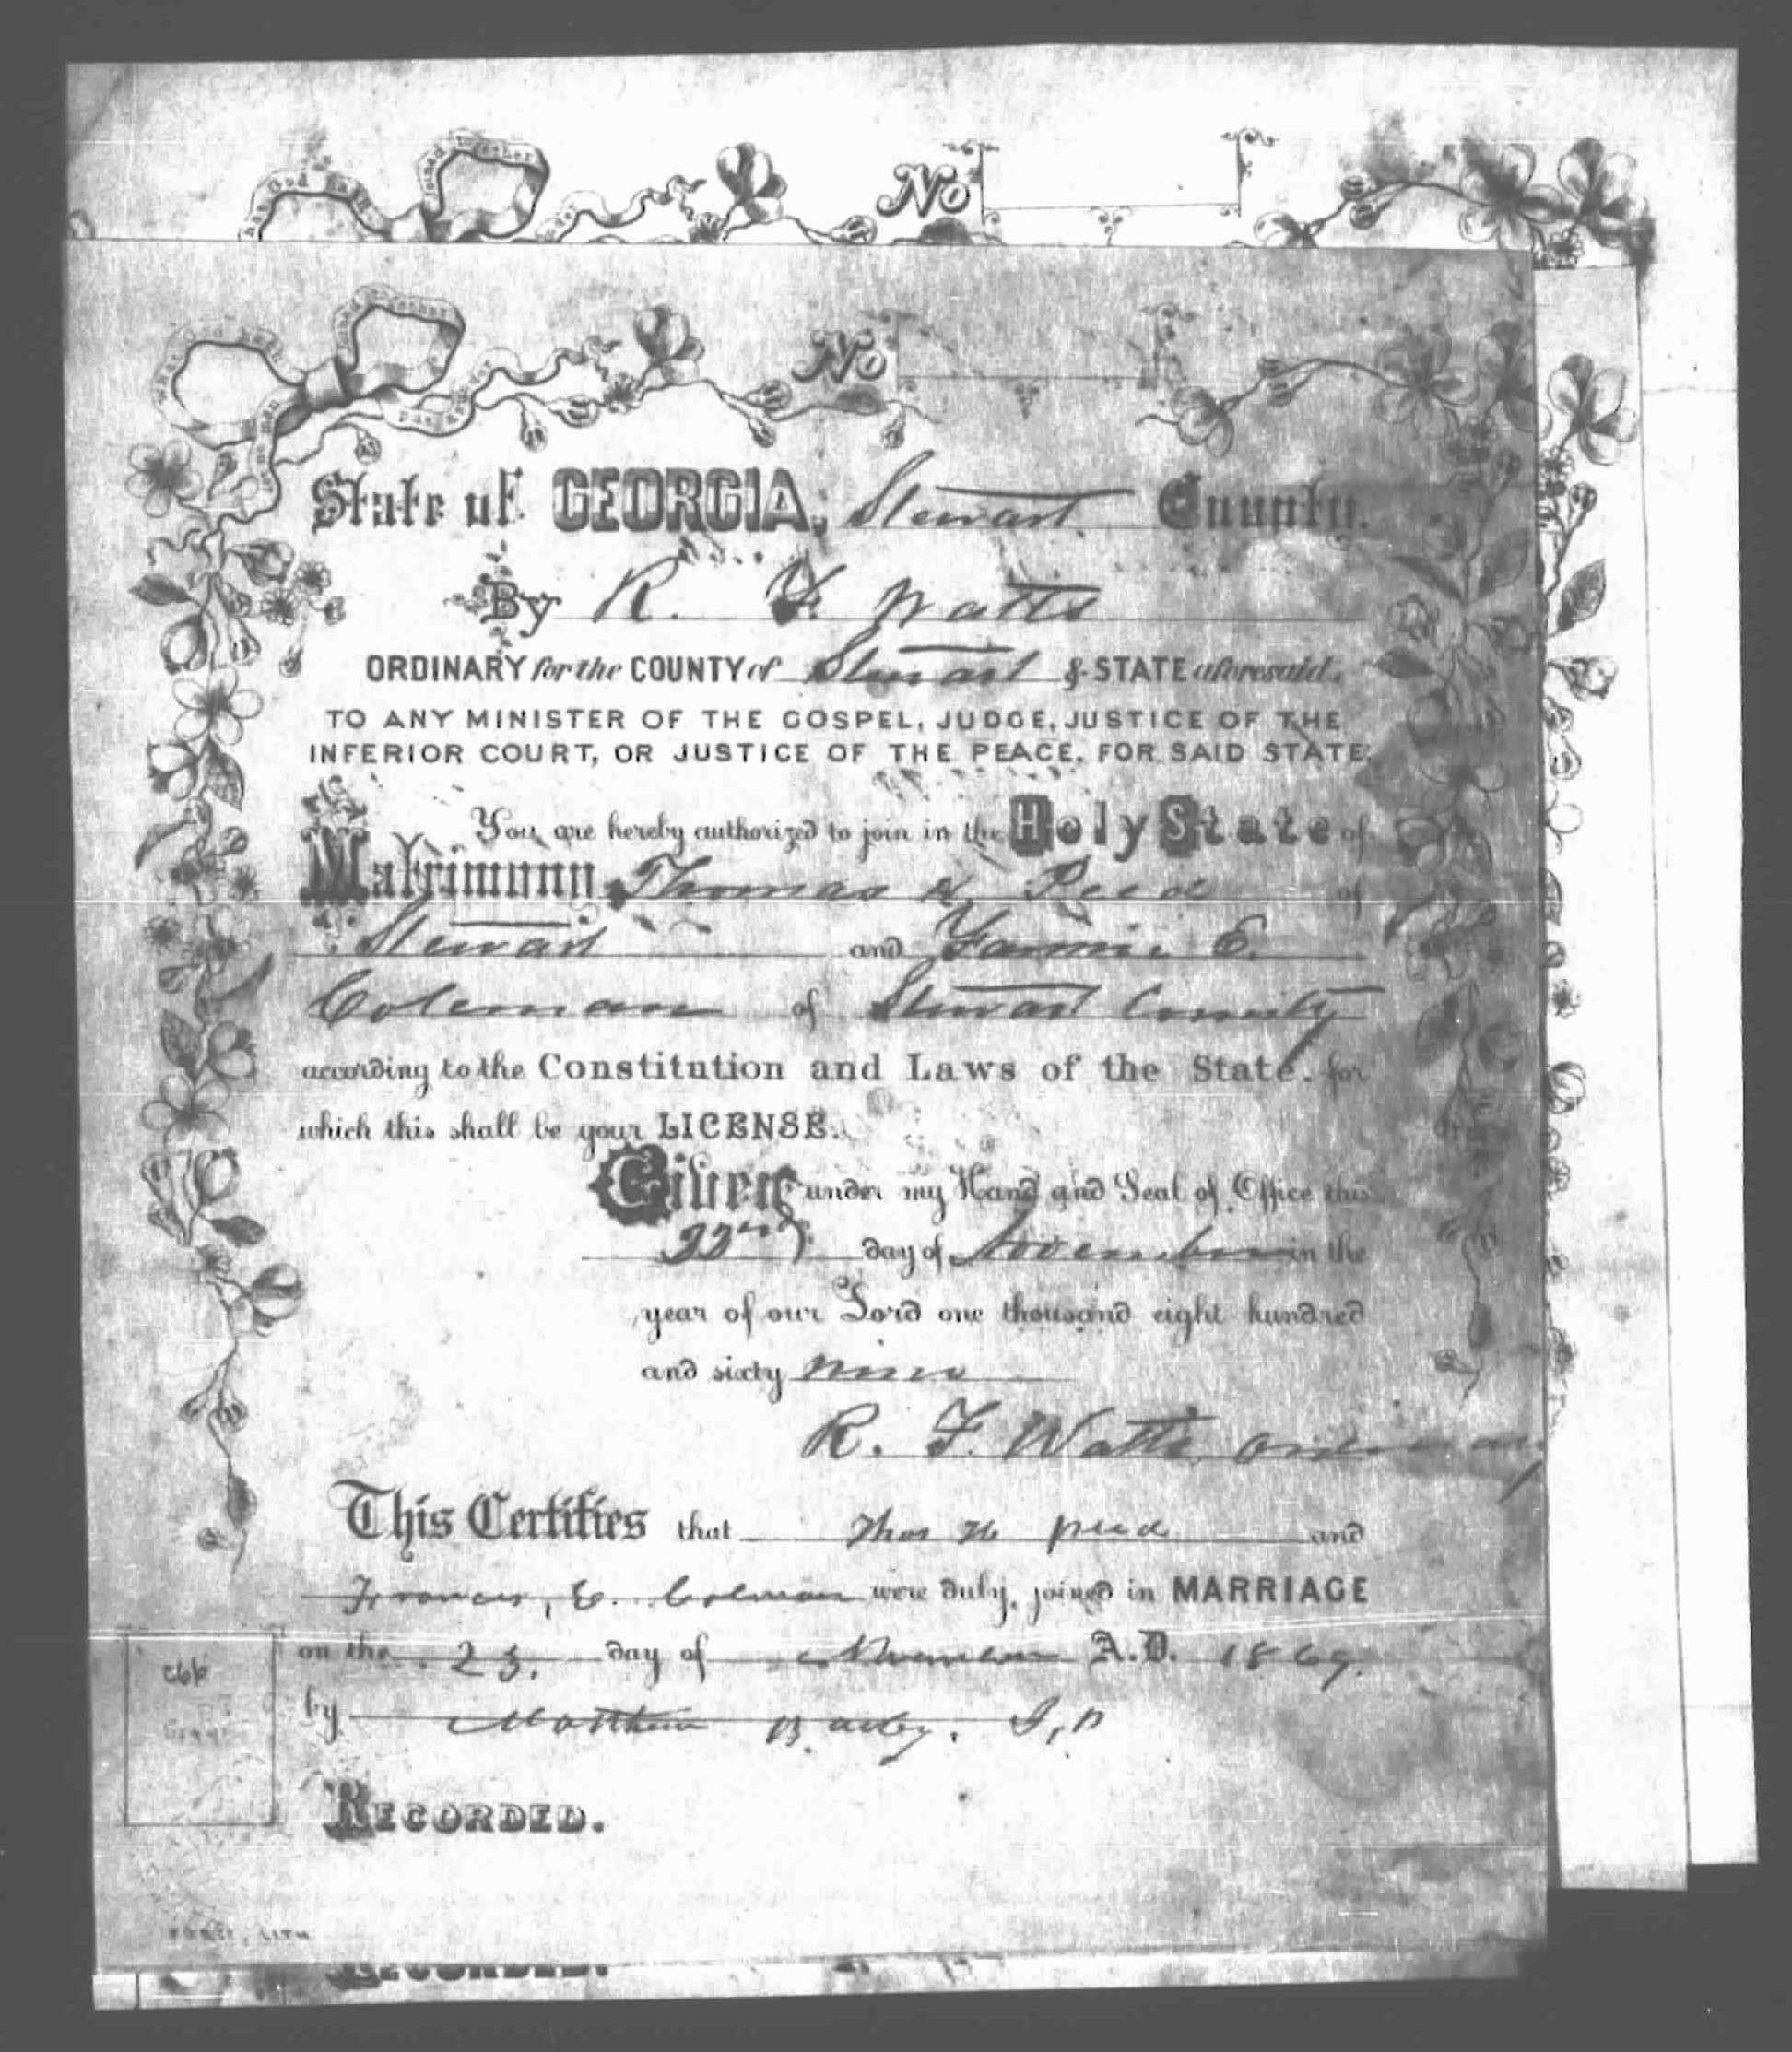 What God hath joined together
No
What God hath joined together
let no man
Put asunder
No
State of GEORGIA, Stewart County.
By R. F. Watts
ORDINARY for the COUNTY of Stewart & STATE aforesaid.
TO ANY MINISTER OF THE GOSPEL, JUDGE, JUSTICE OF THE
INFERIOR COURT, OR JUSTICE OF THE PEACE, FOR SAID STATE:
You are hereby authorized to join in the Holy State of
Matrimony Thomas H. Reed of
Stewart and Fannie E.
Coleman of Stewart County
according to the Constitution and Laws of the State, for
which this shall be your LICENSE.
Given under my Hand and Seal of Office this
22nd day of November in the
year of our Lord one thousand eight hundred
and sixty nine
R. F. Watts, Ordinary
This Certifies that Thos H Reed and
Frances, E. Colman were duly joined in MARRIAGE
on the 23. day of November A.D. 1869.
by Matthew J, P
RECORDED.
LITH
RECORDED.